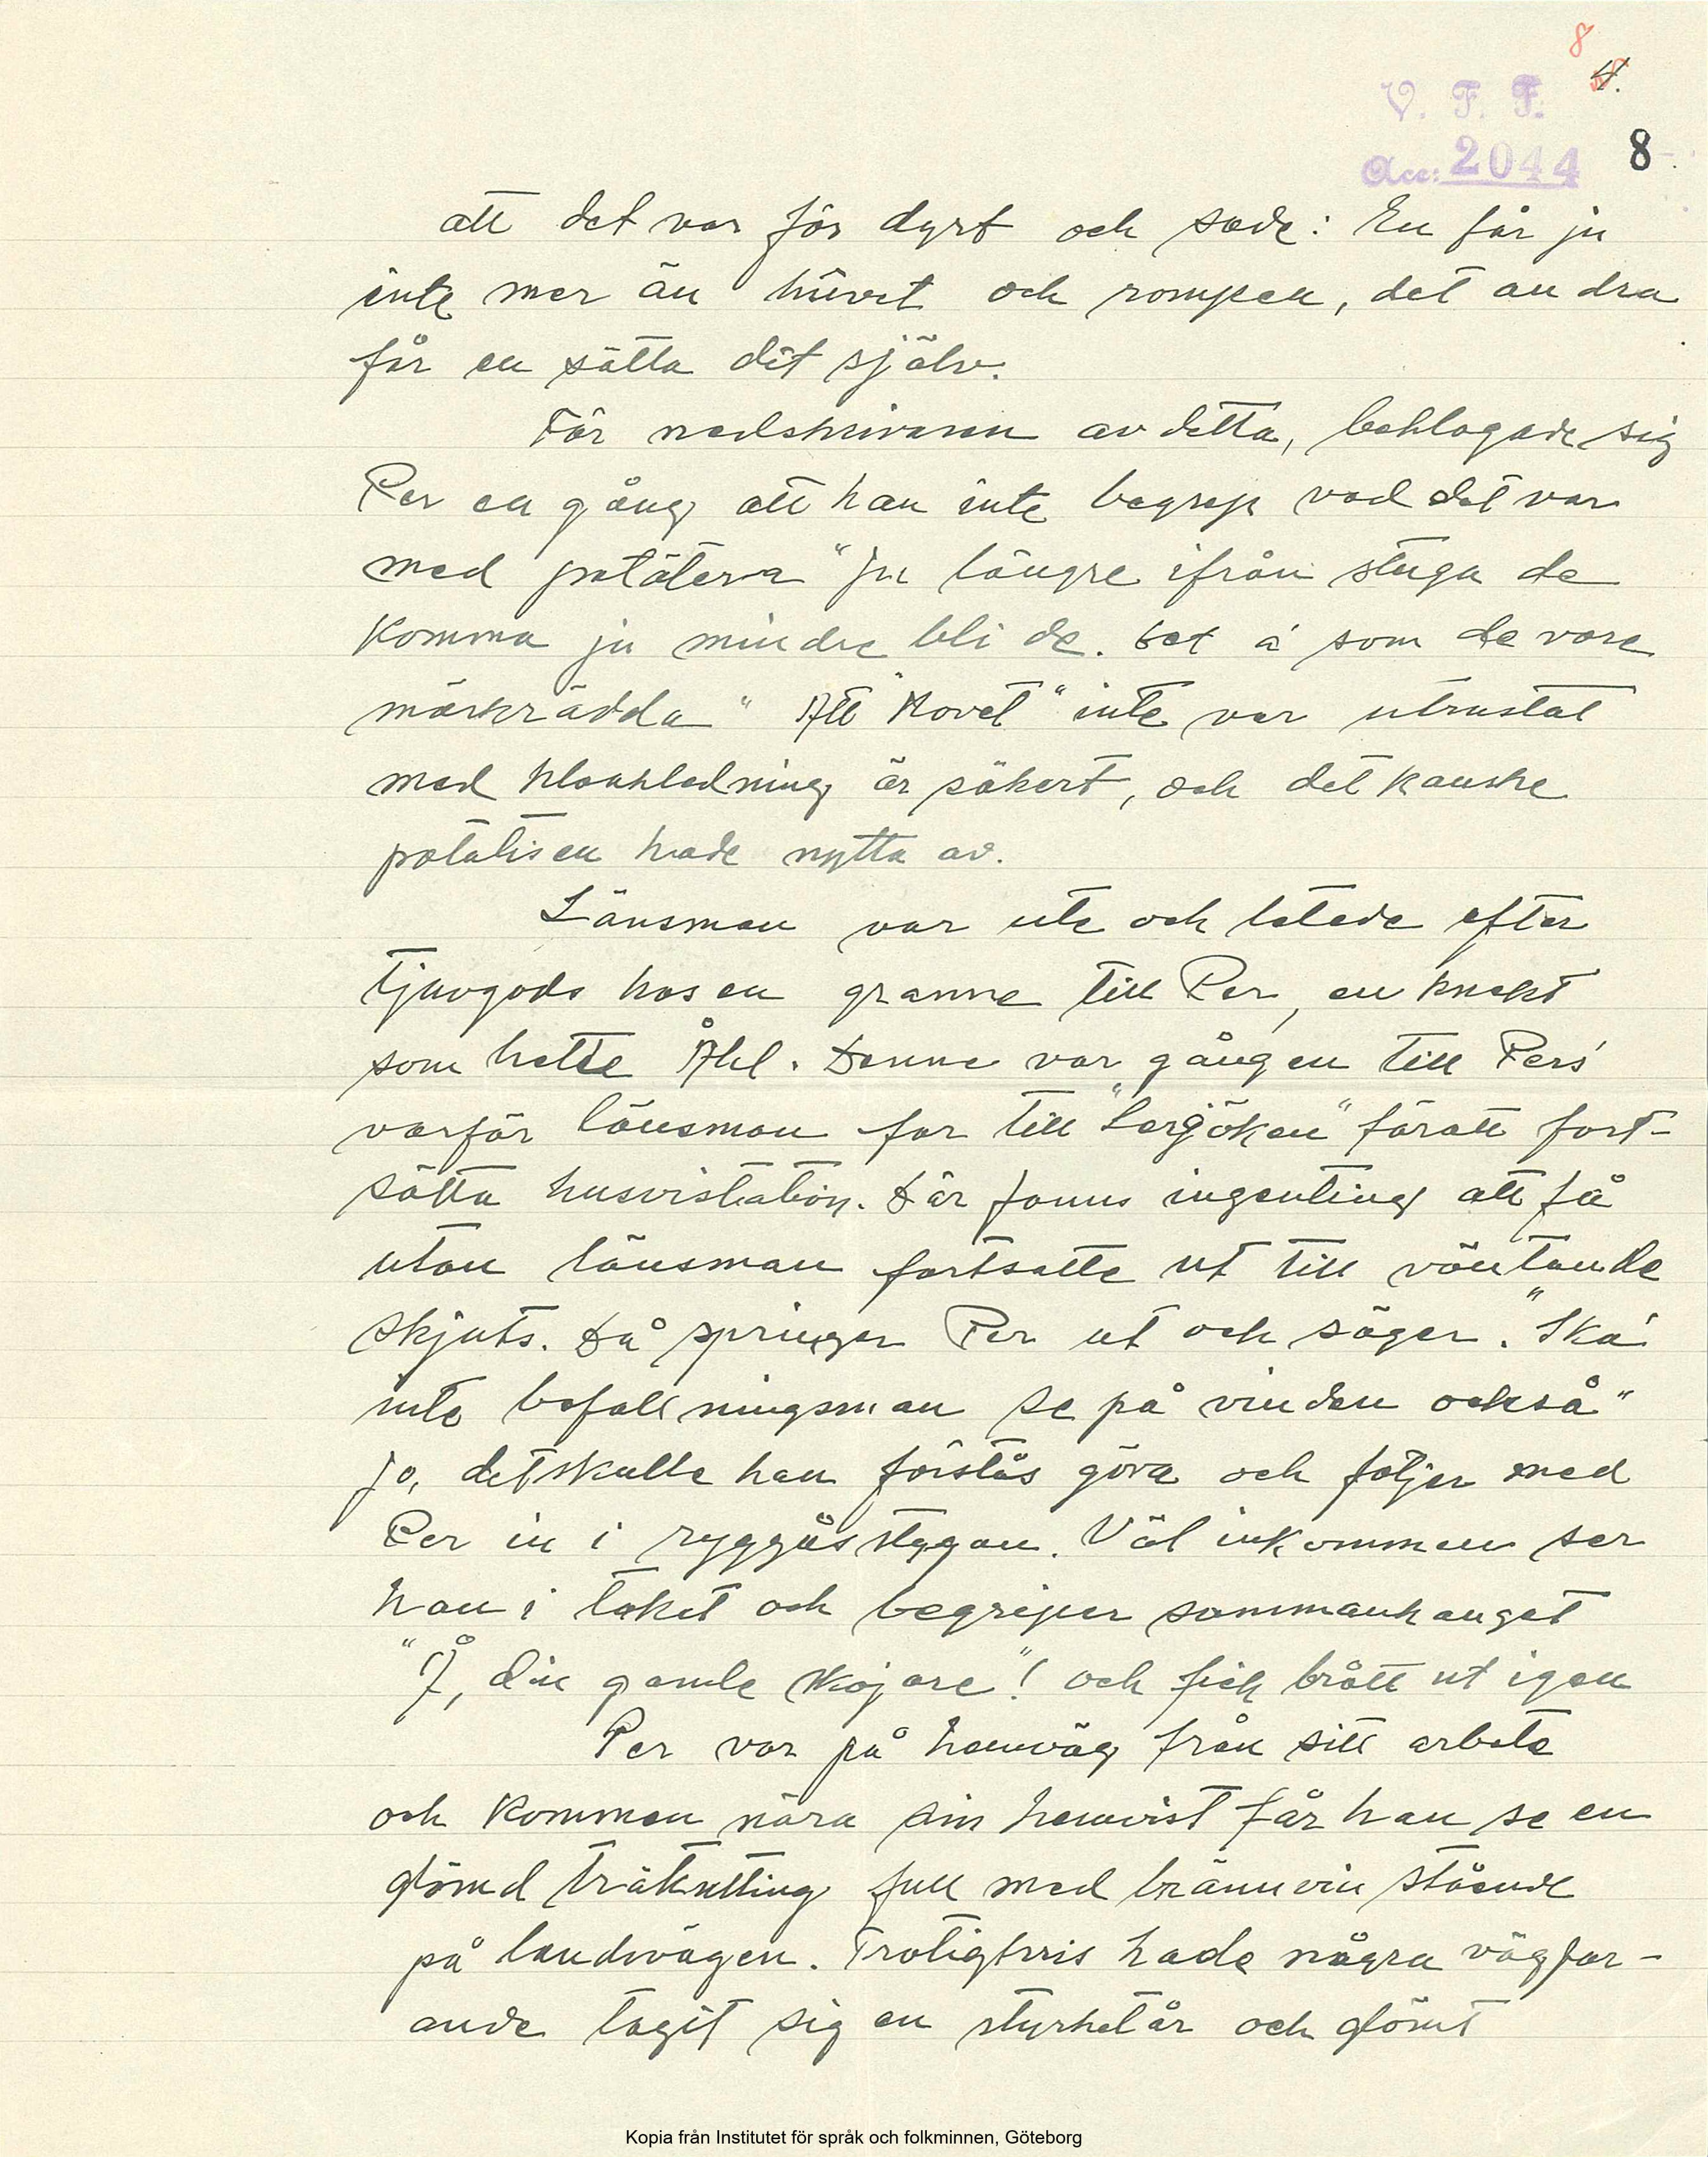 8
4.
V. F. F.
Acc: 2044
8
att det var för dyrt och sade: En får ju
inte mer än huvet och rompen, det andra
får en sätta dit själv.
För nedskrivaren av detta, beklagade sig
Per en gång att han inte begrep vad det var
med potäterna "Ju längre ifrån stuga de
komma ju mindre bli de. Det ä som de vore
mörkrädda" Att "Hovet" inte var utrustat
med kloakledning är säkert, och det kanske
potatisen hade nytta av.
Länsman var ute och letade efter
tjuvgods hos en granne till Per, en knekt
som hette Åhl. Denne var gången till Pers'
varför länsman for till "Lergöken" föratt fort-
sätta husvisitation. Där fanns ingenting att få
utan länsman fortsatte ut till väntande
skjuts. Då springer Per ut och säger. "Ska
inte befallningsman se på vinden också"
Jo, det skulle han förstås göra och följer med
Per in i ryggåsstugan. Väl inkommen ser
han i taket och begriper sammanhanget
"Å, din gamle skojare"! och fick brått ut igen
Per var på hemväg från sitt arbete
och kommen nära sin hemvist får han se en
glömd träkutting full med brännvin stående
på landsvägen. Troligtvis hade några vägfar-
ande tagit sig en styrketår och glömt
Kopia från Institutet för språk och folkminnen, Göteborg